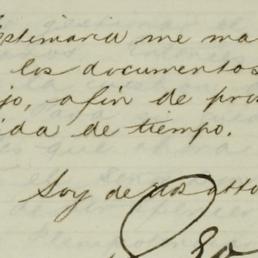 estimaria me ma
los documentos
jo, afin de pro
ida de tiempo.
Soy de Vds atto